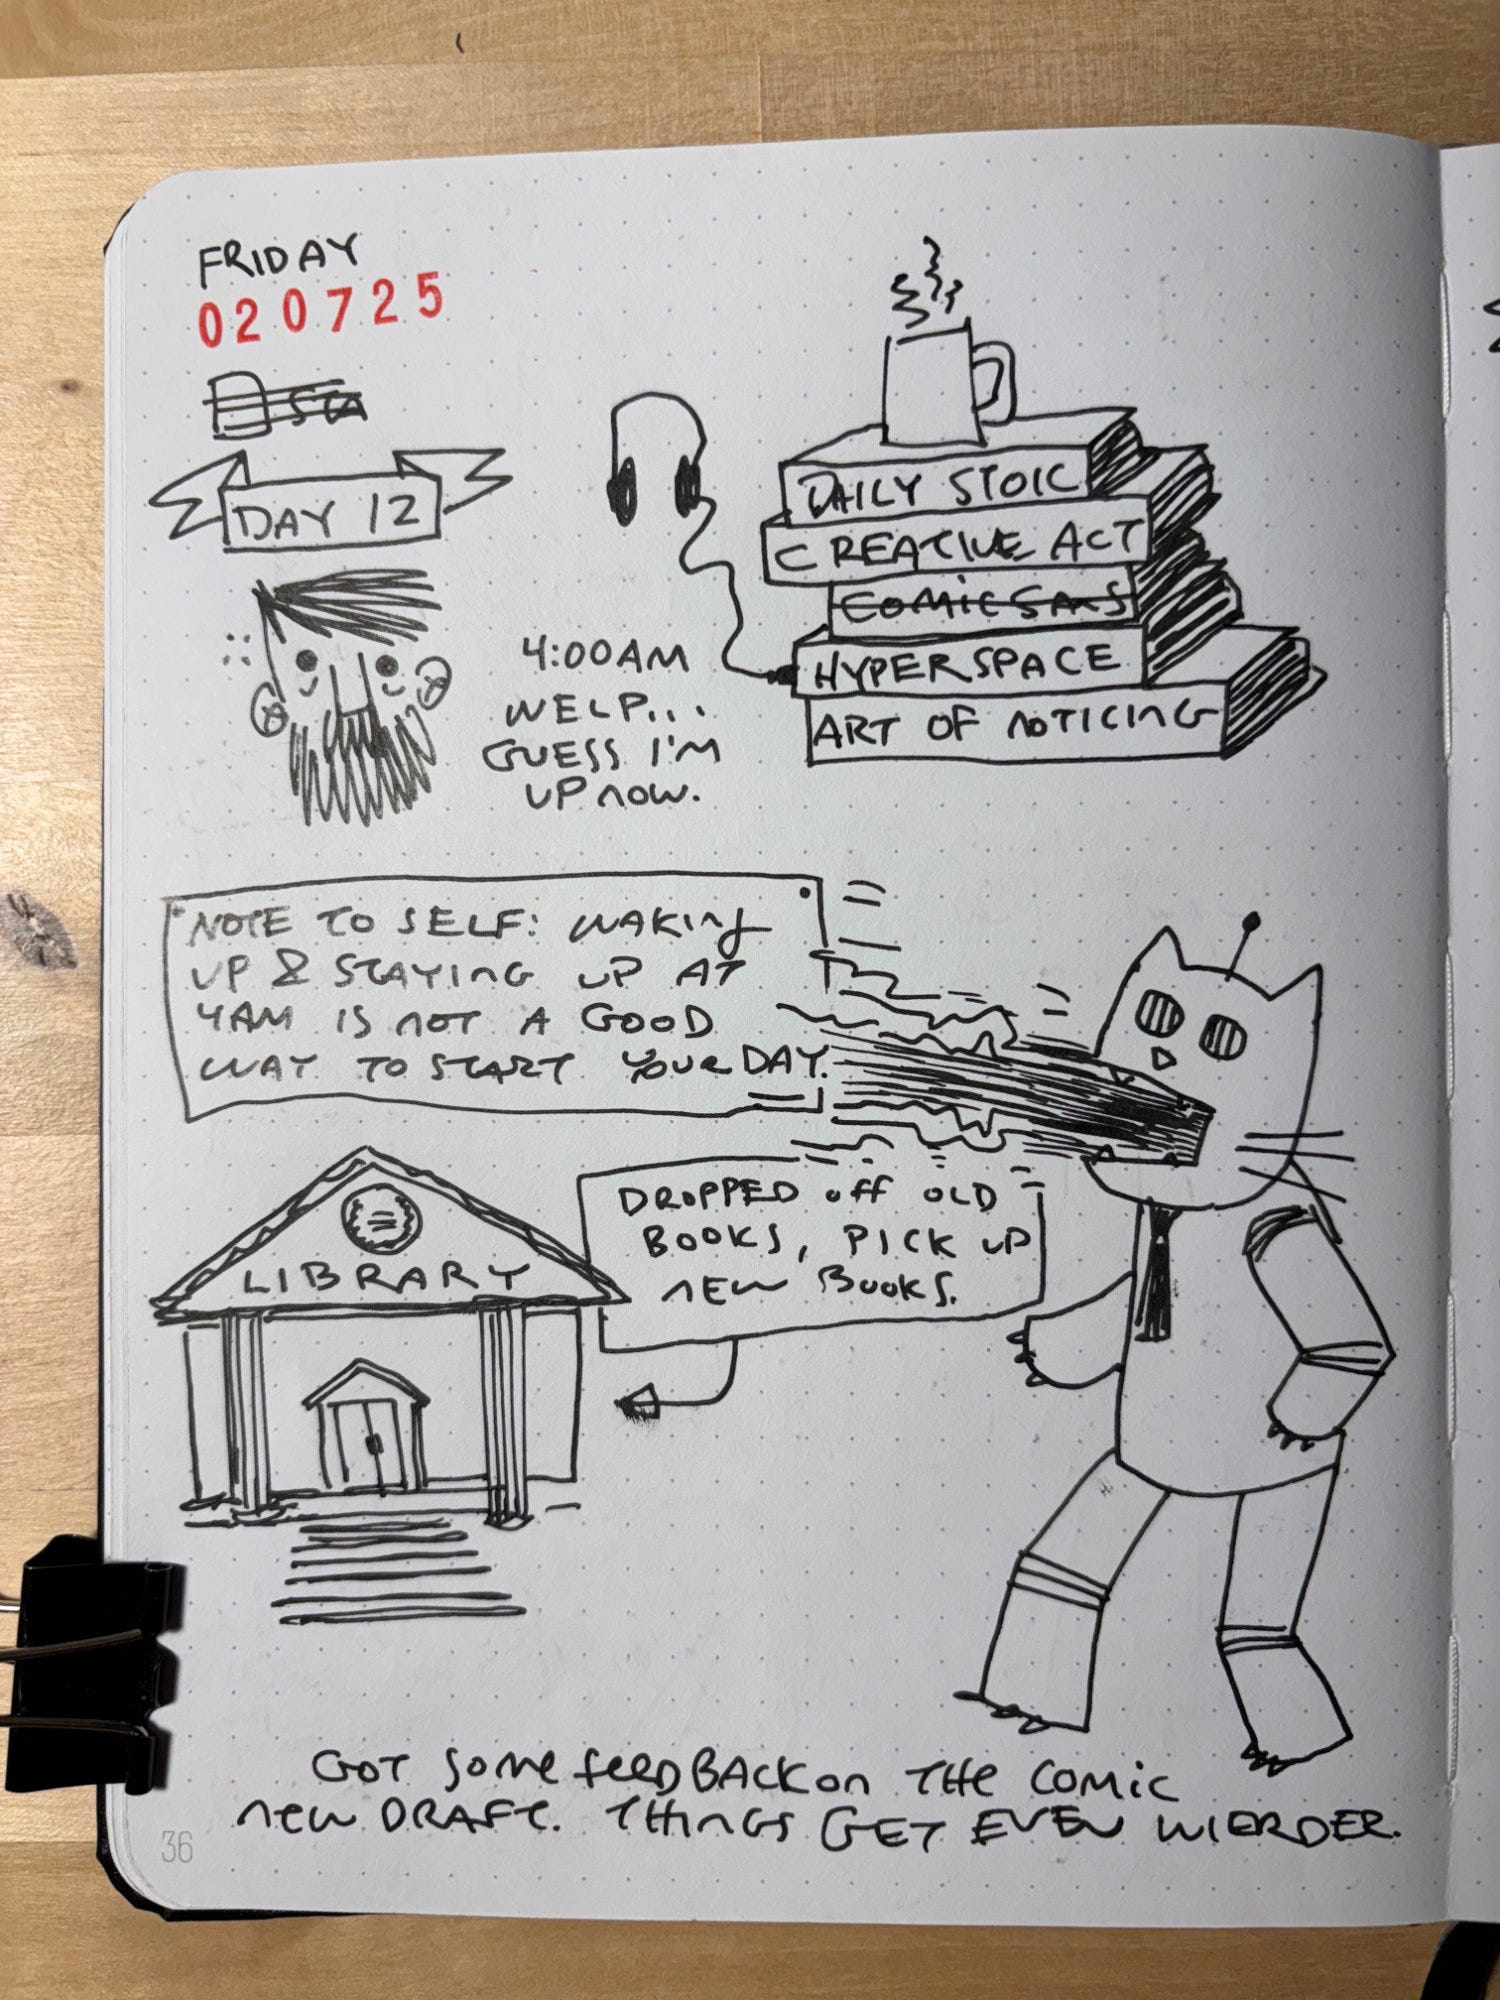 FRIDAY
020725
DAY 12
4:00AM
WELP...
GUESS I'M
UP NOW.
DAILY STOIC
CREATIVE ACT
COMIC SANS
HYPERSPACE
ART OF NOTICING
NOTE TO SELF: WAKING
UP & STAYING UP AT
4AM IS NOT A GOOD
WAY TO START YOUR DAY.
LIBRARY
DROPPED OFF OLD
BOOKS, PICK UP
NEW BOOKS.
GOT SOME FEEDBACK ON THE COMIC
NEW DRAFT. THINGS GET EVEN WIERDER.
36